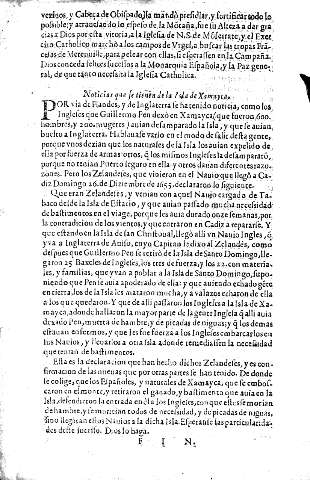 vezinos, y Cabeça de Obispado, la mandò presidiar, y fortificar todo lo
possible; y arrasando lo espeso de la Motaña, fue su Alteza a dar gra
cias a Dios por esta vitoria, a la Iglesia de N. S. de Monserrate, y el Exer
cito Catholico marchò a los campos de Vrgel, a buscar las tropas Fran
cesas de Merenuile, para pelear con ellas, si esperassen en la Campaña.
Dios conceda felices sucessos a la Monarquia Española, y la Paz gene-
ral, de que tanto necessita la Iglesia Catholica.
Noticias que se tienen de la Isla de Xamayca.
POR via de Flandes, y de Inglaterra se ha tenido noticia, como los
Ingleses que Guillermo Pen dexò en Xamayca, que fueron, 600.
hombres, y 200. mugeres, auian desamparado la Isla, y que se auian
buelto a Inglaterra. Hablauase vario en el modo de salir desta gente,
porque vnos dezian que los naturales de la Isla los auian expelido de
ella por fuerça de armas: otros, q̃ los mismos Ingleses la desampararõ,
porque no tenian Puerto seguro en ella: y otros dauan diferentes razo-
nes. Pero los Zelandeses, que vinieron en el Nauio que llegò a Ca-
diz Domingo 26. de Diziembre de 1655. declararon lo siguiente.
Que eran Zelandeses, y venian con aquel Nauio cargado de Ta-
baco desde la Isla de Estacio, y que auian passado mucha necessidad
de bastimentos en el viage, porque les auia durado onze semanas, por
la contradicion de los vientos, y que entraron en Cadiz a repararse. Y
que estando en la Isla de san Christoual, llegò alli vn Nauio Ingles, q̃
yva a Inglaterra de Auiso, cuyo Capitan le dixo al Zelandès, como
despues que Guillermo Pen se retirò de la Isla de Santo Domingo, lle-
garon 25. Baxeles de Ingleses, los tres de fuerça, y los 22. con materia-
les, y familias, que yvan a poblar a la Isla de Santo Domingo, supo-
niendo que Pen le auia apoderado de ella: y que auiendo echado gẽte
en tierra, los de la Isla les mataron mucha, y a valazos echaron de ella
a los que quedaron. Y que de alli passaron los Ingleses a la Isla de Xa-
mayca, adonde hallaron la mayor parte de la gente Inglesa q̃ alli auia
dexado Pen, muerta de hambre, y de picadas de niguas; y q̃ los demas
estauan enfermos, y que les fue fuerça a los Ingleses embarcarlos en
sus Nauios, y lleuarlos a otra Isla adonde remediassen la necessidad
que tenian de bastimentos.
Esta es la declaracion que han hecho dichos Zelandeses, y es con-
firmacion de las nueuas que por otras partes se han tenido. De donde
se colige, que los Españoles, y naturales de Xamayca, que se embos-
caron en el monte, y retiraron el ganado, y bastimento que auia en la
Isla, defendieron la entrada en ella los Ingleses, con que estos se morian
de hambre, y se murieran todos de necessidad, y de picadas de niguas,
sino llegaran estos Nauios a la dicha Isla. Esperanse las particularida-
des deste sucesso. Dios lo haga.
F I N.